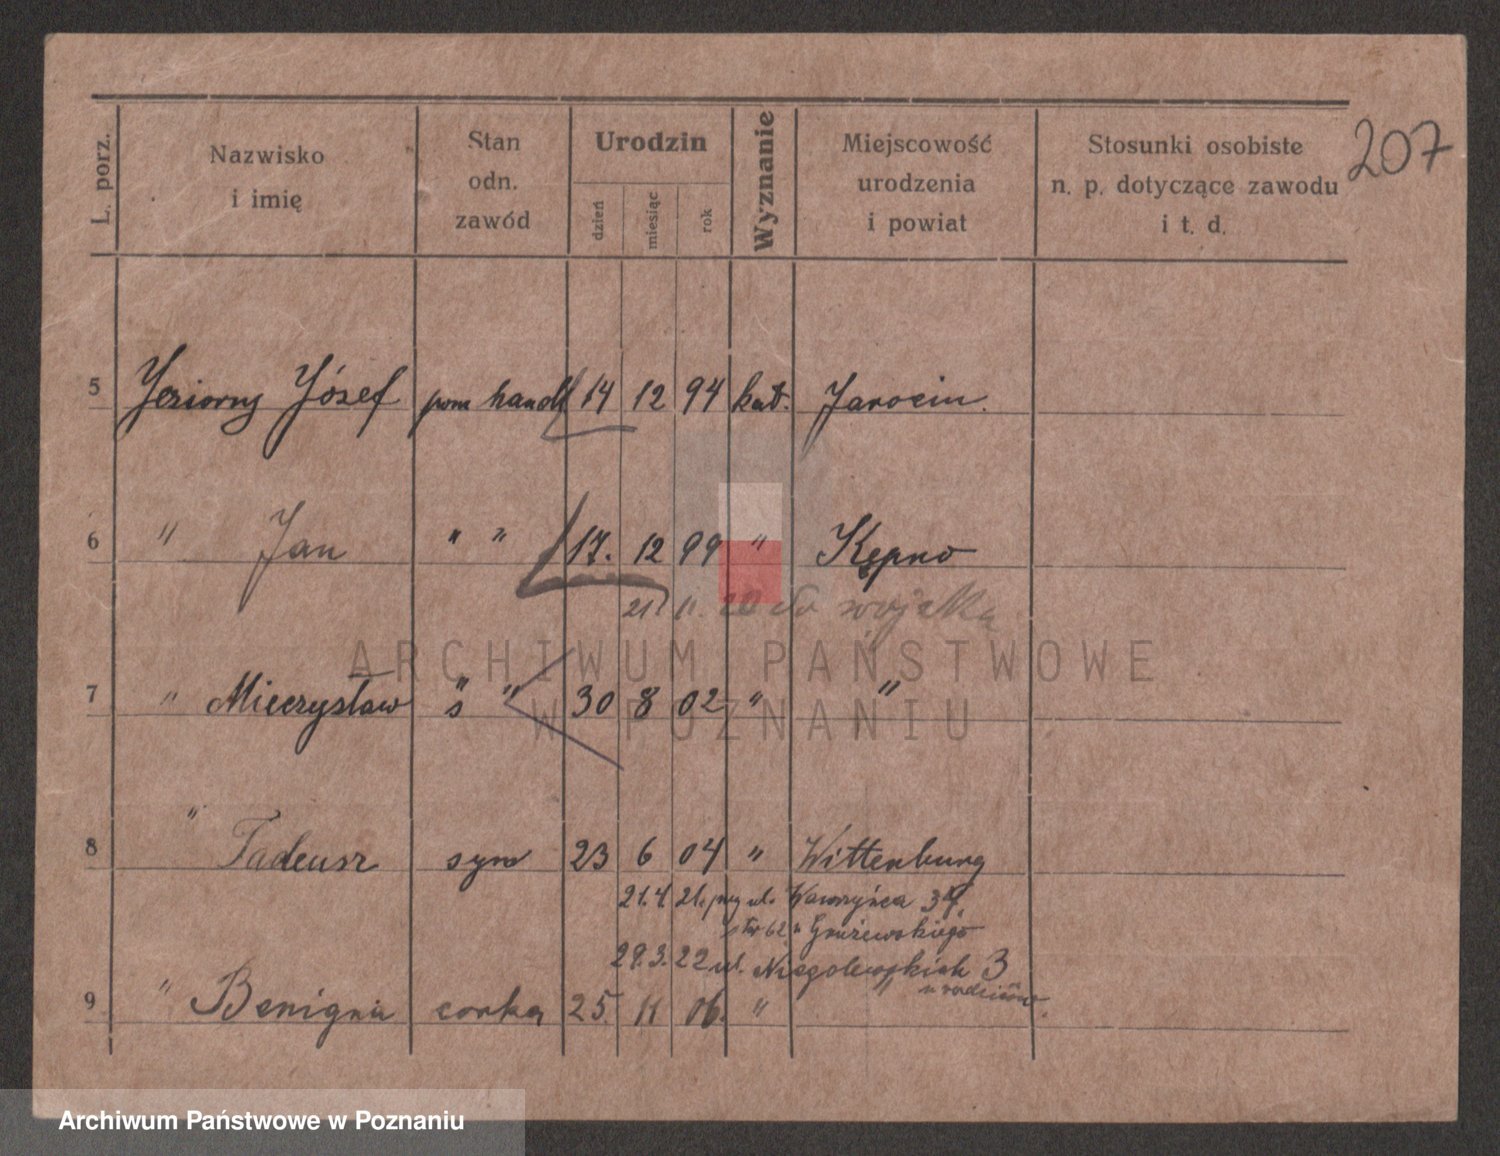 207
L. porz.
Nazwisko i imię
Stan odn. zawód
Urodzin
dzień miesiąc rok
Wyznanie
Miejscowość urodzenia i powiat
Stosunki osobiste n. p. dotyczące zawodu i t. d.
5 Jeziorny Józef pom handl 14 12 94 kat. Jarocin.
6 " Jan " " 17. 12 99 " Kępno
21. 11. 20 do wojska
7 " Mieczysław " " 30 8 02 " "
s
8 " Tadeusz syn 23 6 04 " Wittenburg
21.4. 21. przy ul. Wawrzyńca 34.
62 u Grużewskiego
29.3.22 ul. Niegolewskich 3
u rodziców.
9 " Benigna corka 25. 11 06. " "
ARCHIWUM PAŃSTWOWE
W POZNANIU
Archiwum Państwowe w Poznaniu